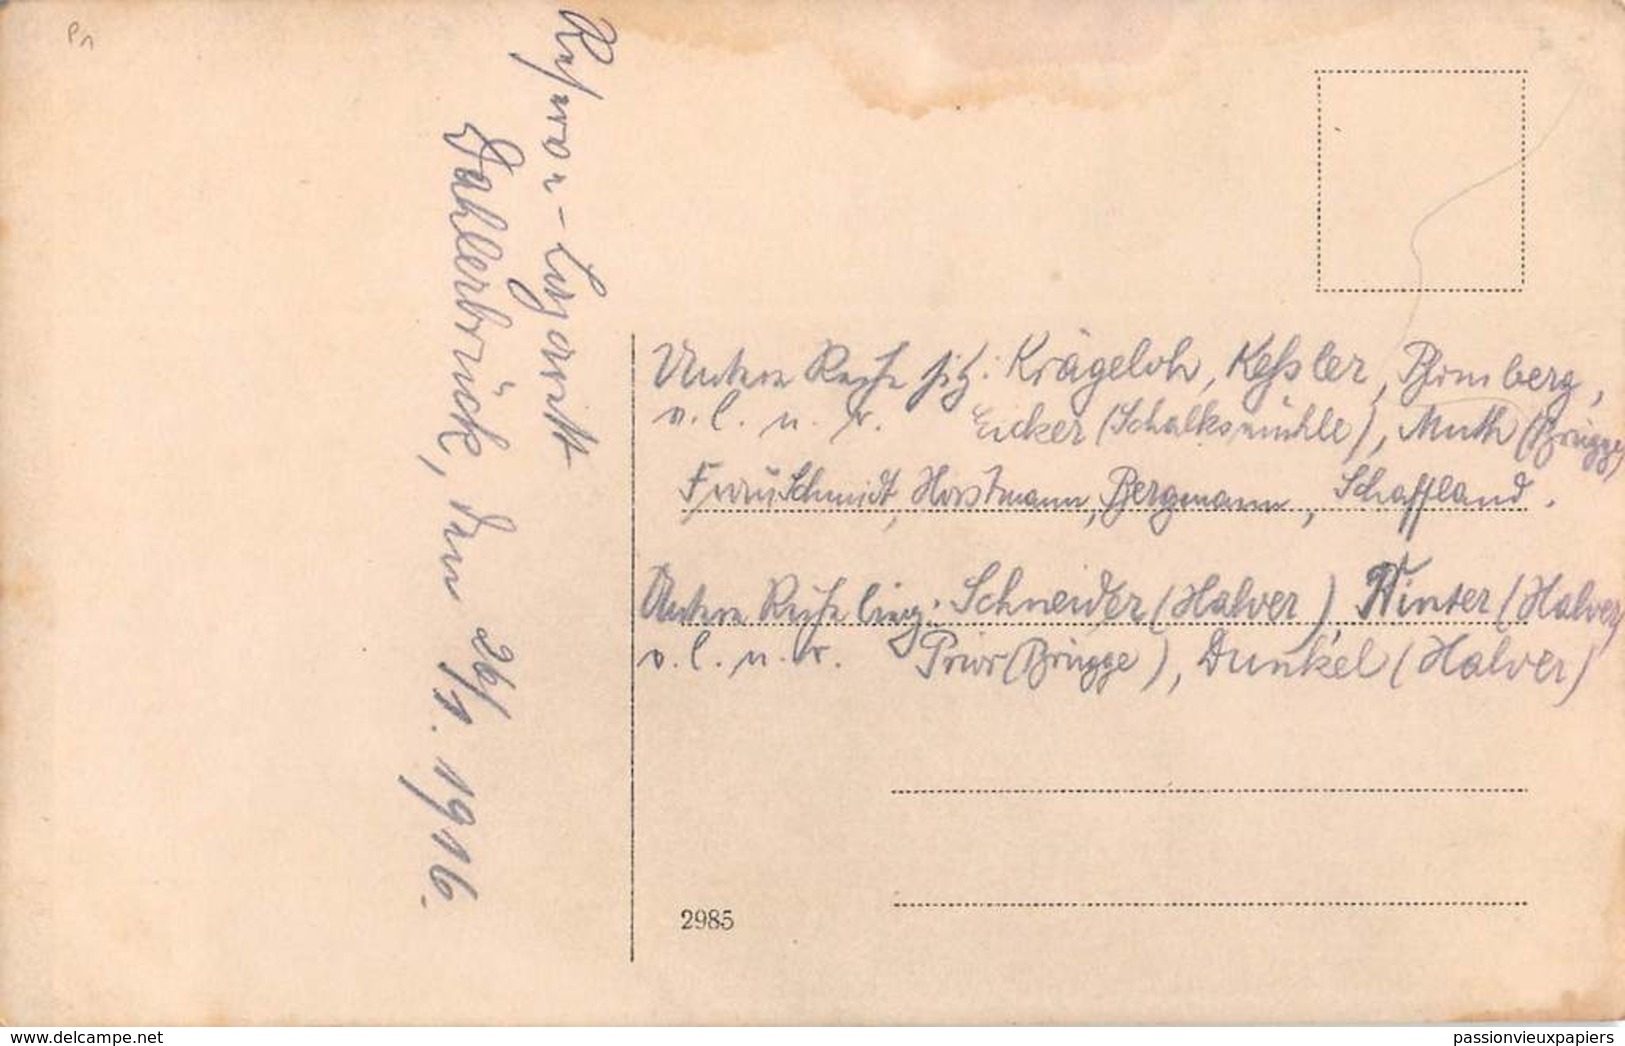 Reserve-Lazarett
Dahlerbrück, den 26/1. 1916.
Untere Reihe sitz: Krägeloh, Keßler, Blomberg,
v. l. n. r. Eicker (Schalksmühle), Muth (Brügge)
Frau Schmidt, Horstmann, Bergmann, Schaffland.
Untere Reihe lieg: Schneider (Halver) Winter (Halver)
v. l. n. r. Prior (Brügge), Dunkel (Halver)
2985
delcampe.net
passionvieuxpapiers